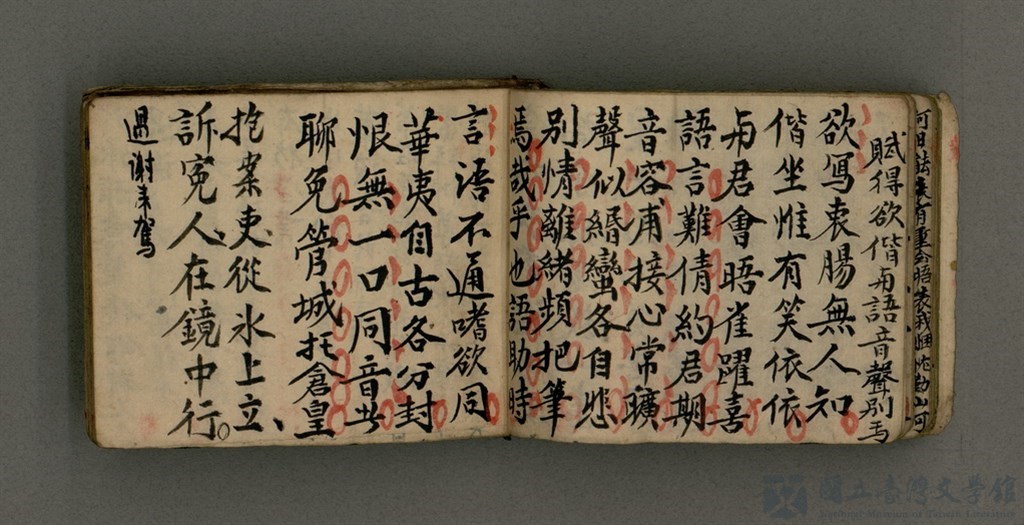 賦得欲偕与語音聲別焉
欲寫衷腸無人知
偕坐惟有笑依依
与君會晤雀躍喜
語言難倩約君期
音容甫接心常曠
聲似緡蠻各自悲
別情離緒頻把筆
焉哉乎也語助時
言語不通嗜欲同
華夷自古各分封
恨無一口同音出
聊免管城托倉皇
抱案吏從氷上立
訴寃人在鏡中行
過謝來駕
國立臺灣文學館
National Museum of Taiwan Literature